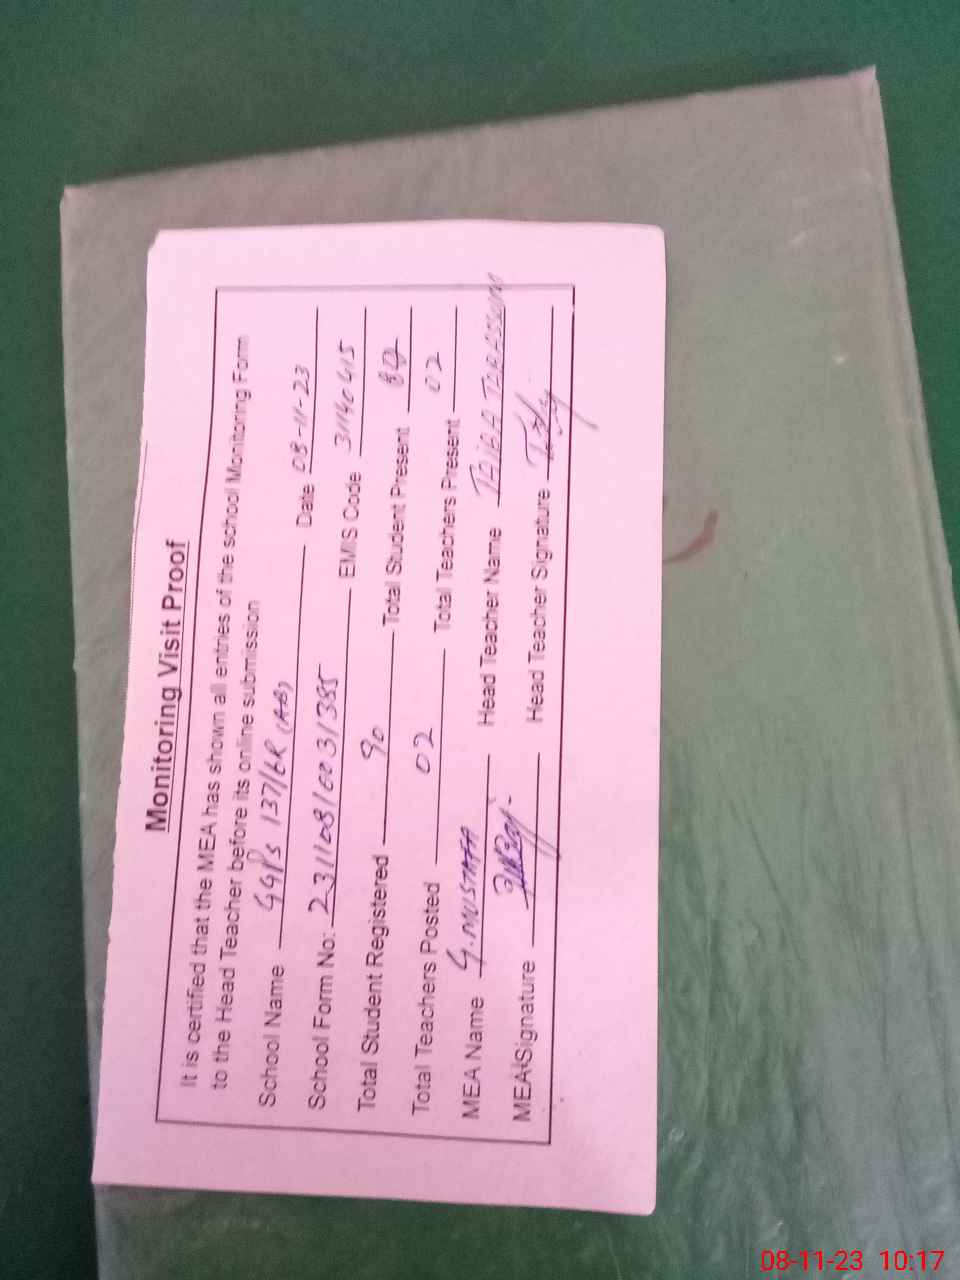 Monitoring Visit Proof
It is certified that the MEA has shown all entries of the school Monitoring Form
to the Head Teacher before its online submission
School Name GGPS 137/6R (AB) Date 08-11-23
School Form No: 231108/003/385 EMIS Code 31140415
Total Student Registered 90 Total Student Present
Total Teachers Posted 02 Total Teachers Present 02
MEA Name G.MUSTAFA Head Teacher Name TAIBA
MEA Signature Head Teacher Signature
08-11-23 10:17